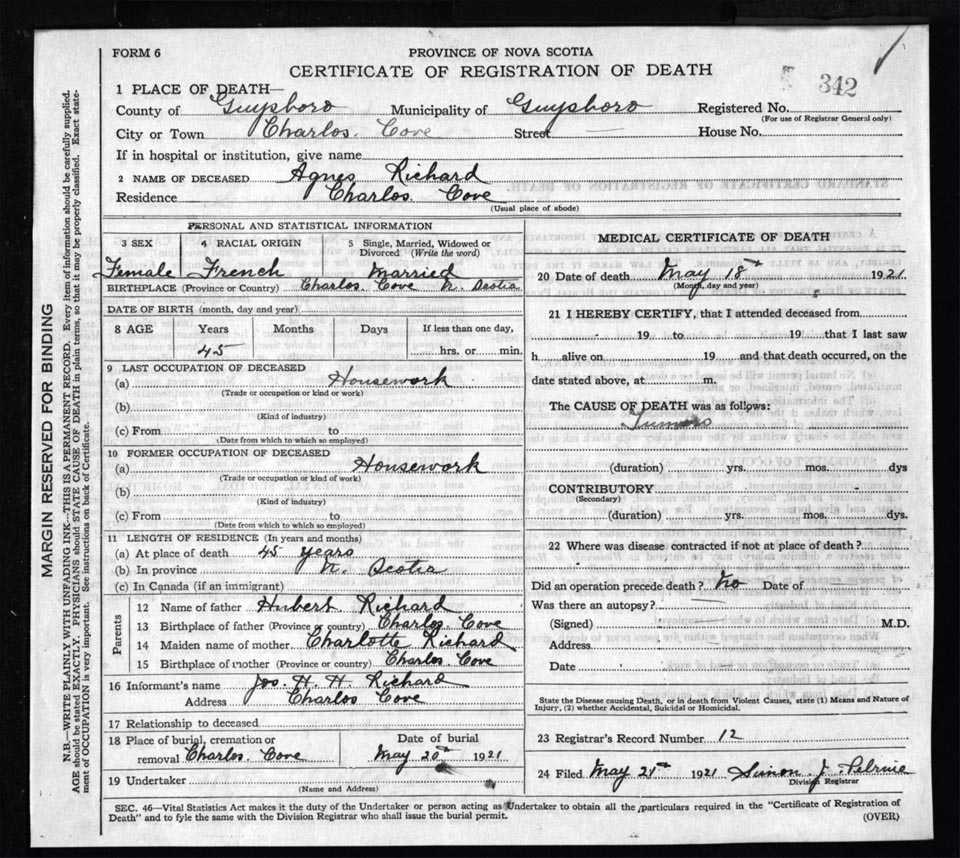 FORM 6
PROVINCE OF NOVA SCOTIA
CERTIFICATE OF REGISTRATION OF DEATH
342
1 PLACE OF DEATH—
County of Guysboro Municipality of Guysboro Registered No.
(For use of Registrar General only)
City or Town Charlos Cove Street — House No.
If in hospital or institution, give name
2 NAME OF DECEASED Agnes Richard
Residence Charlos Cove
(Usual place of abode)
PERSONAL AND STATISTICAL INFORMATION
3 SEX 4 RACIAL ORIGIN 5 Single, Married, Widowed or Divorced (Write the word)
Female French Married
BIRTHPLACE (Province or Country) Charlos Cove N. Scotia
DATE OF BIRTH (month, day and year)
8 AGE Years Months Days If less than one day,
45 hrs. or min.
9 LAST OCCUPATION OF DECEASED
(a) Housework
(Trade or occupation or kind or work)
(b)
(Kind of industry)
(c) From to
(Date from which to which so employed)
10 FORMER OCCUPATION OF DECEASED
(a) Housework
(Trade or occupation or kind of work)
(b)
(Kind of industry)
(c) From to
(Date from which to which so employed)
11 LENGTH OF RESIDENCE (In years and months)
(a) At place of death 45 years
(b) In province N. Scotia
(c) In Canada (if an immigrant)
Parents
12 Name of father Hubert Richard
13 Birthplace of father (Province or country) Charlos Cove
14 Maiden name of mother Charlotte Richard
15 Birthplace of mother (Province or country) Charlos Cove
16 Informant's name Jos. H. H. Richard
Address Charlos Cove
17 Relationship to deceased
18 Place of burial, cremation or removal Charlos Cove Date of burial May 20th 1921
19 Undertaker
(Name and Address)
MEDICAL CERTIFICATE OF DEATH
20 Date of death May 18th 1921
(Month, day and year)
21 I HEREBY CERTIFY, that I attended deceased from
19 to 19 that I last saw
h alive on 19 and that death occurred, on the
date stated above, at m.
The CAUSE OF DEATH was as follows:
Tumors
(duration) yrs. mos. dys
CONTRIBUTORY
(Secondary)
(duration) yrs. mos. dys.
22 Where was disease contracted if not at place of death?
Did an operation precede death? No Date of
Was there an autopsy? —
(Signed) M.D.
Address
Date
State the Disease causing Death, or in death from Violent Causes, state (1) Means and Nature of
Injury, (2) whether Accidental, Suicidal or Homicidal.
23 Registrar's Record Number 12
24 Filed May 21st 1921 Simon J Pelrine
Division Registrar
SEC. 46—Vital Statistics Act makes it the duty of the Undertaker or person acting as Undertaker to obtain all the particulars required in the "Certificate of Registration of
Death" and to fyle the same with the Division Registrar who shall issue the burial permit.
(OVER)
MARGIN RESERVED FOR BINDING
N.B.—WRITE PLAINLY WITH UNFADING INK—THIS IS A PERMANENT RECORD. Every item of information should be carefully supplied.
AGE should be stated EXACTLY. PHYSICIANS should STATE CAUSE OF DEATH in plain terms, so that it may be properly classified. Exact state-
ment of OCCUPATION is very important. See instructions on back of Certificate.